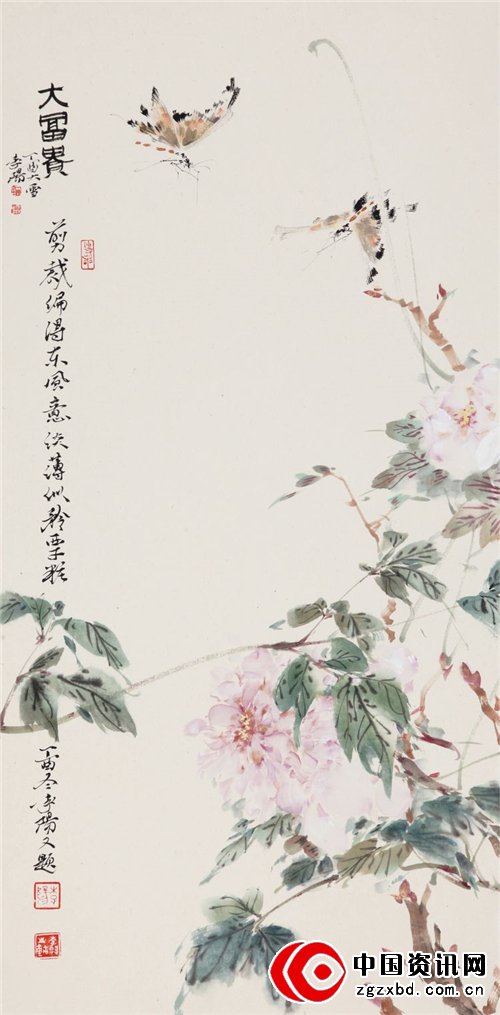 大富贵
丁酉大雪
李陽
剪裁偏得东風意淡薄似矜
丁酉冬李陽又題
中国资讯网
zgzxbd.com.cn